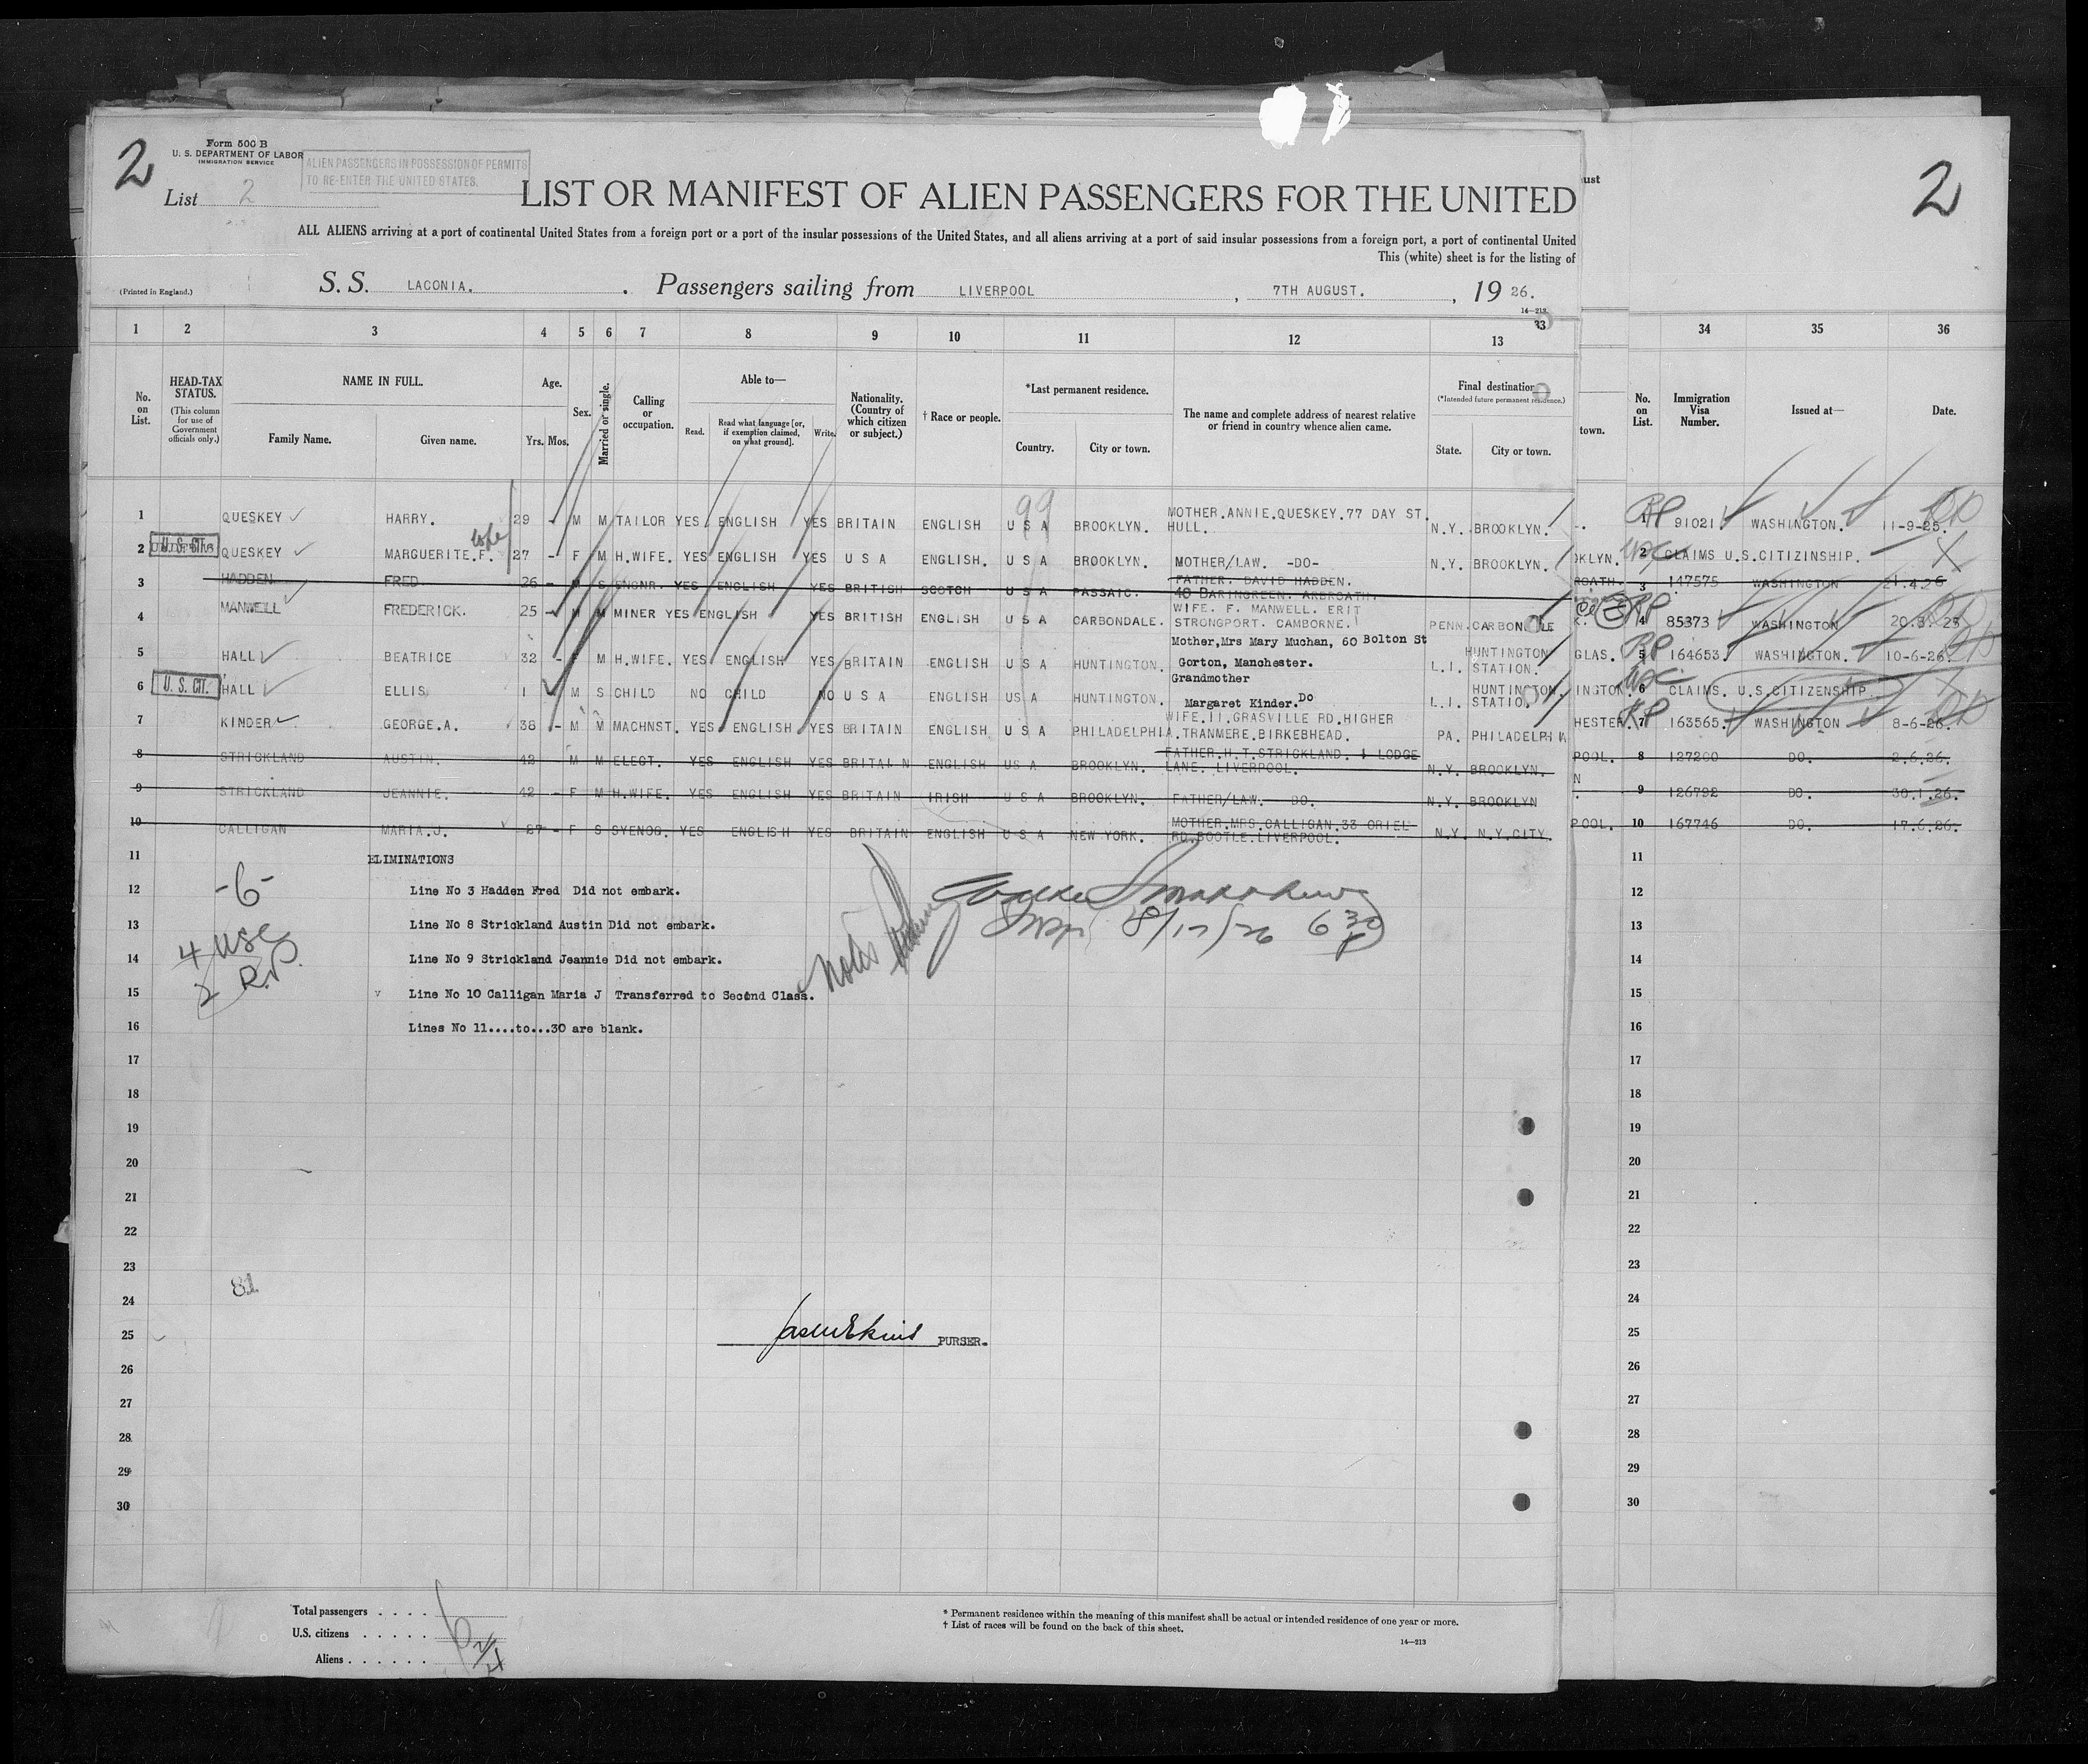 2
Form 500 B
U. S. DEPARTMENT OF LABOR
IMMIGRATION SERVICE
ALIEN PASSENGERS IN POSSESSION OF PERMITS
TO RE-ENTER THE UNITED STATES.
List 2
LIST OR MANIFEST OF ALIEN PASSENGERS FOR THE UNITED
ust
2
ALL ALIENS arriving at a port of continental United States from a foreign port or a port of the insular possessions of the United States, and all aliens arriving at a port of said insular possessions from a foreign port, a port of continental United
This (white) sheet is for the listing of
(Printed in England.)
S. S. LACONIA. Passengers sailing from LIVERPOOL, 7TH AUGUST., 1926.
1 2 3 4 5 6 7 8 9 10 11 12 13 33 34 35 36
No. on List.
HEAD-TAX STATUS.
(This column for use of Government officials only.)
NAME IN FULL.
Family Name. Given name.
Age.
Yrs. Mos.
Sex.
Married or single.
Calling or occupation.
Able to—
Read. Read what language [or, if exemption claimed, on what ground]. Write.
Nationality. (Country of which citizen or subject.)
† Race or people.
*Last permanent residence.
Country. City or town.
The name and complete address of nearest relative or friend in country whence alien came.
Final destination
(*Intended future permanent residence.)
State. City or town.
town.
No. on List.
Immigration Visa Number.
Issued at—
Date.
1 QUESKEY HARRY. 29 - M M TAILOR YES ENGLISH YES BRITAIN ENGLISH U S A BROOKLYN. MOTHER.ANNIE.QUESKEY.77 DAY ST. HULL. N.Y. BROOKLYN. 1 RP 91021 WASHINGTON. 11-9-25.
wife
2 U.S. CIT. QUESKEY MARGUERITE.F. 27 - F M H.WIFE. YES ENGLISH YES U S A ENGLISH. U S A BROOKLYN. MOTHER/LAW. -DO- N.Y. BROOKLYN. OKLYN. USC 2 CLAIMS U.S.CITIZINSHIP.
3 HADDEN FRED 26 - M S ENGNR. YES ENGLISH YES BRITISH SCOTCH U S A PASSAIC. FATHER. DAVID HADDEN. ROATH. 3 147575 WASHINGTON 21.4.26
4 MANWELL FREDERICK. 25 - M M MINER YES ENGLISH YES BRITISH ENGLISH U S A CARBONDALE. WIFE. F. MANWELL. ERIT STRONGPORT. CAMBORNE. PENN. CARBONDALE 4 RP 85373 WASHINGTON
5 HALL BEATRICE 32 - F M H.WIFE. YES ENGLISH YES BRITAIN ENGLISH U S A HUNTINGTON. Mother,Mrs Mary Muchan, 60 Bolton St Gorton, Manchester. L.I. HUNTINGTON STATION. GLAS. 5 RP 164653. WASHINGTON. 10-6-26.
6 U. S. CIT. HALL ELLIS 1 M S CHILD NO CHILD NO U S A ENGLISH US A HUNTINGTON. Grandmother Margaret Kinder. Do L.I. HUNTINGTON. STATION INGTON. USC 6 CLAIMS. U.S.CITIZENSHIP
7 KINDER GEORGE.A. 38 - M M MACHNST. YES ENGLISH YES BRITAIN ENGLISH U S A PHILADELPHIA. WIFE.11.GRASVILLE RD.HIGHER TRANMERE.BIRKEBHEAD. PA. PHILADELPHIA HESTER. RP 7 163565. WASHINGTON 8-6-26.
8 STRICKLAND AUSTIN. 42 M M ELECT. YES ENGLISH YES BRITAIN ENGLISH US A BROOKLYN. FATHER.H.T.STRICKLAND. 1 LODGE LANE. LIVERPOOL. N.Y. BROOKLYN. POOL. 8 127200 DO. 2.6.26.
9 STRICKLAND JEANNIE. 42 - F M H.WIFE. YES ENGLISH YES BRITAIN IRISH U S A BROOKLYN. FATHER/LAW. DO. N.Y. BROOKLYN N 9 126792 DO. 30.1.26.
10 CALLIGAN MARIA.J. 27 - F S SYENOG. YES ENGLISH YES BRITAIN ENGLISH U S A NEW YORK. MOTHER.MRS.CALLIGAN.33 ORIEL RD.BOOTLE.LIVERPOOL. N.Y. N.Y.CITY POOL. 10 167746 DO. 17.6.26.
11 ELIMINATIONS 11
12 -6- Line No 3 Hadden Fred Did not embark. 12
13 Line No 8 Strickland Austin Did not embark. 8/17/26 6 30 P 13
4 USC
14 Line No 9 Strickland Jeannie Did not embark. 14
2 R.P.
15 v Line No 10 Calligan Maria J Transferred to Second Class. 15
16 Lines No 11....to...30 are blank. 16
17 17
18 18
19 19
20 20
21 21
22 22
23 23
81
24 24
25 PURSER. 25
26 26
27 27
28 28
29 29
30 30
Total passengers . . . .
U.S. citizens . . . . .
Aliens . . . . . .
* Permanent residence within the meaning of this manifest shall be actual or intended residence of one year or more.
† List of races will be found on the back of this sheet.
14—213